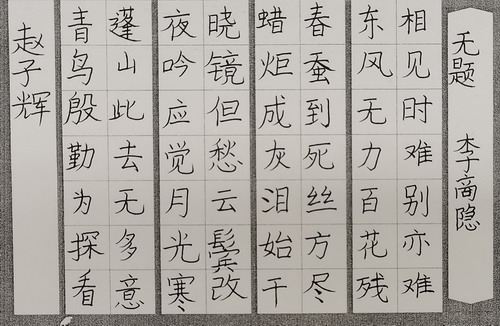 无题 李商隐
相见时难别亦难
东风无力百花残
春蚕到死丝方尽
蜡炬成灰泪始干
晓镜但愁云鬓改
夜吟应觉月光寒
蓬山此去无多意
青鸟殷勤为探看
赵子辉